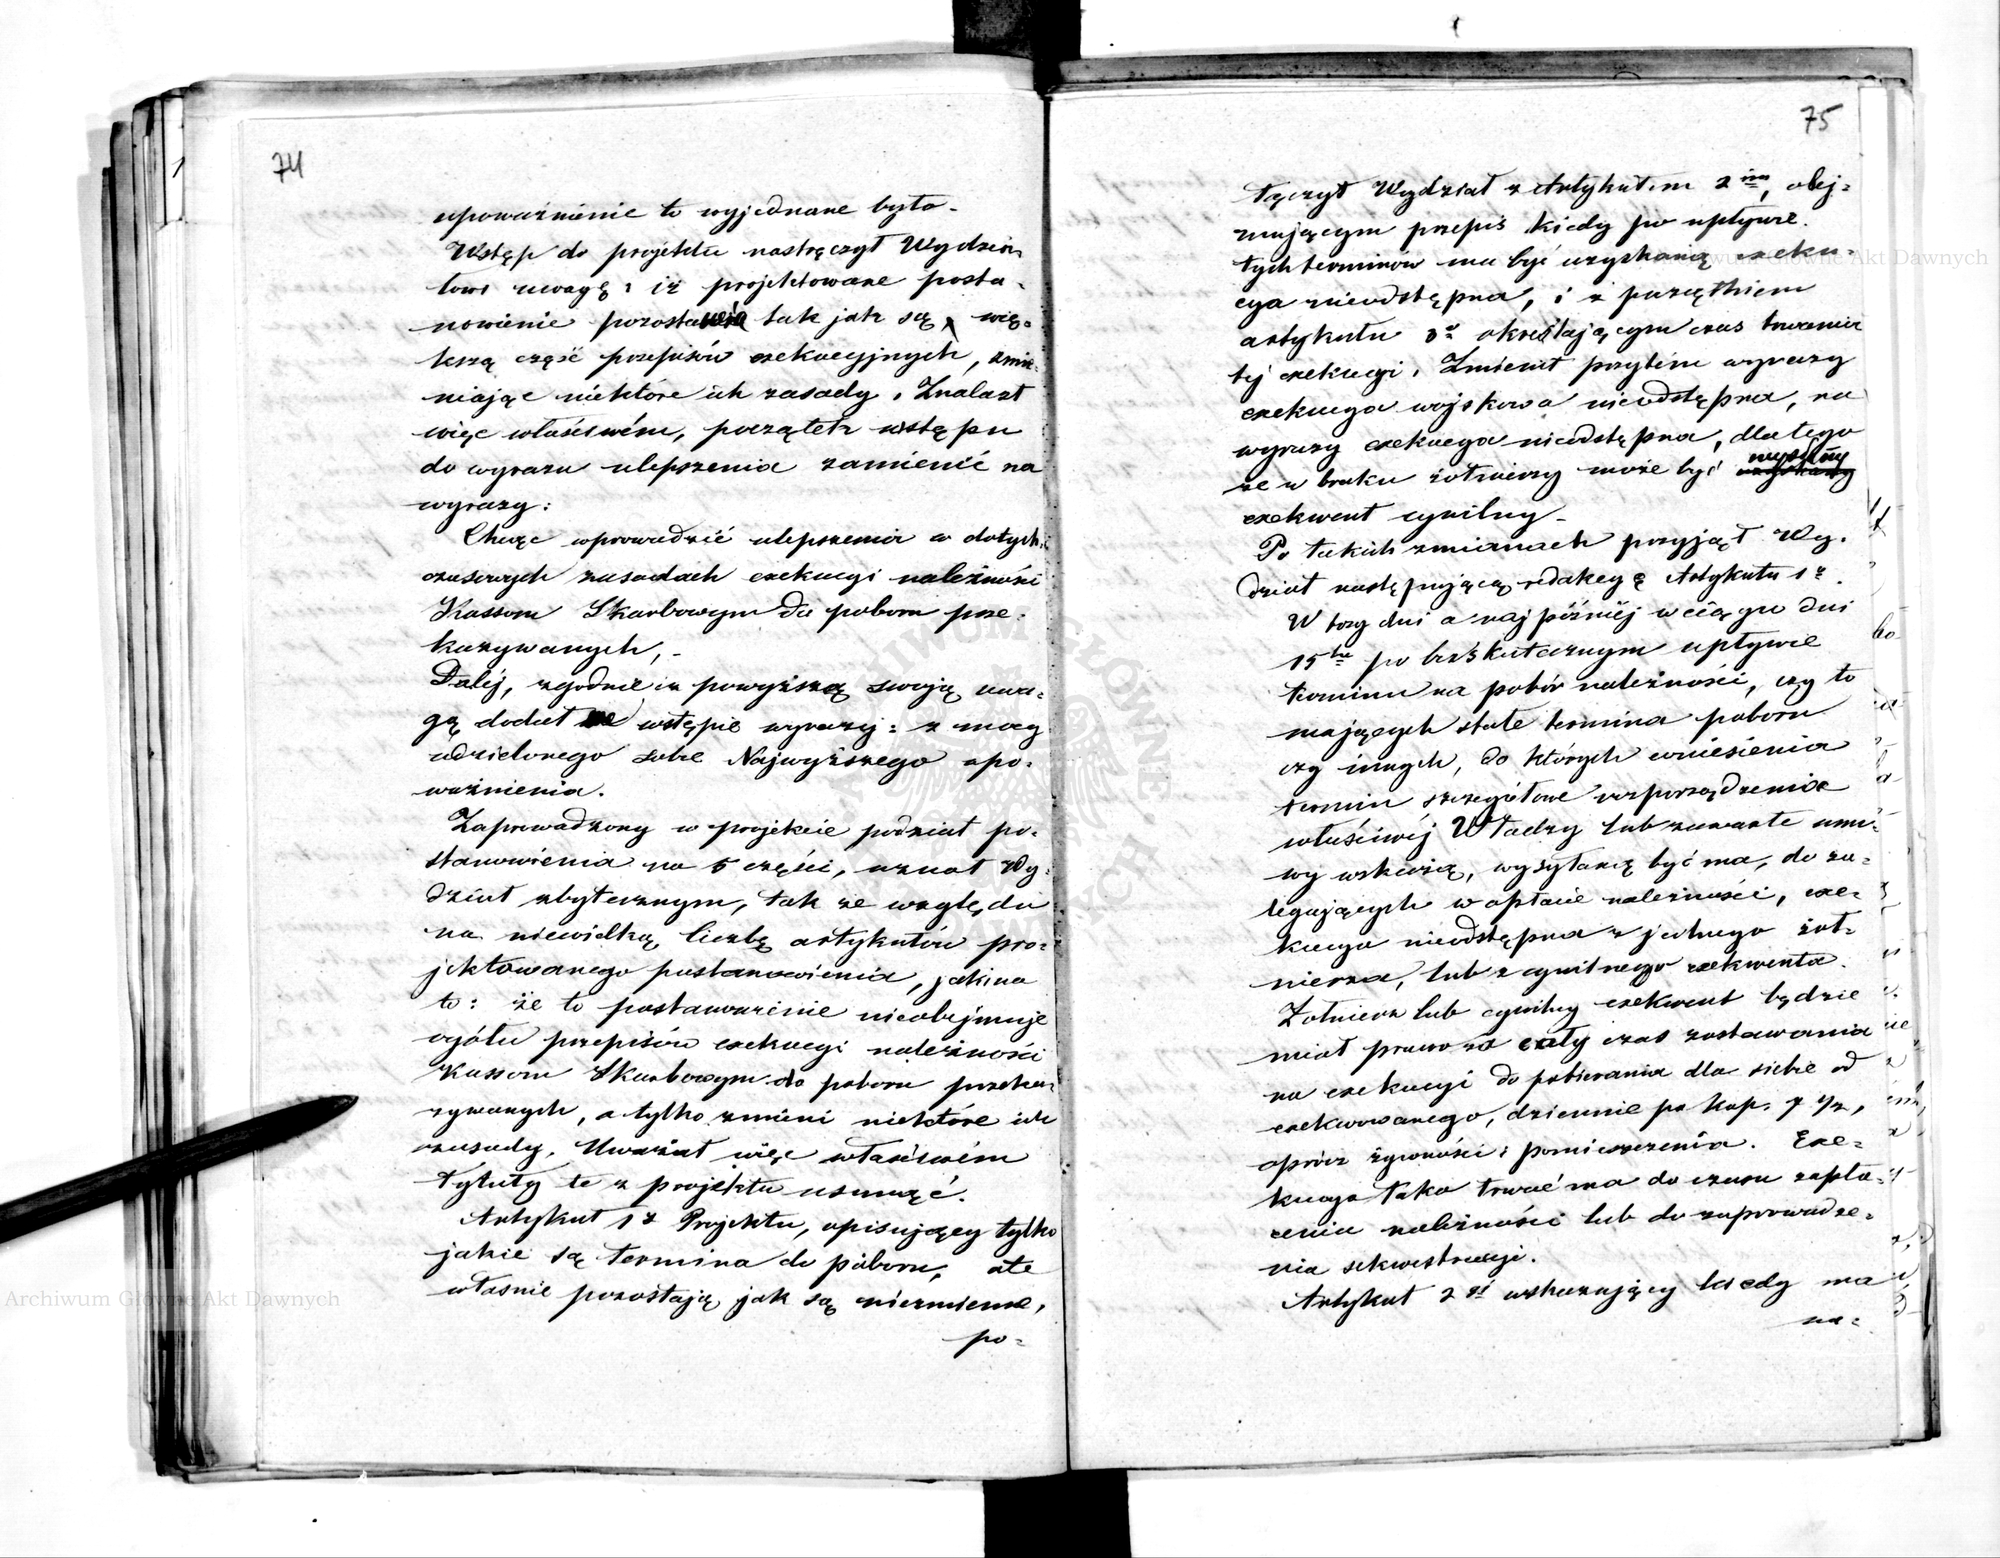 74
upoważnienie to wyjednane było.
Wstęp do projektu nastręczył Wydzia-
łowi uwagę: iż projektowane posta-
nowienie pozostawia tak jak są, więk-
szą część przepisów exekucyjnych, zmie-
niając niektóre ich zasady. Znalazł
więc właściwém, początek wstępu
do wyrazu ulepszenia zamienić na
wyrazy:
Chcąc wprowadzić ulepszenia w dotych-
czasowych zasadach exekucyi należności
Kassom Skarbowym do poboru prze-
kazywanych, -
Daléj, zgodnie z powyższą swoją uwa-
gą dodał we wstępie wyrazy: z mocy
udzielonego sobie Najwyższego upo-
ważnienia.
Zaprowadzony w projekcie podział po-
stanowienia na 5 części, uznał Wy-
dział zbytecznym, tak ze względu
na niewielką liczbę artykułów pro-
jektowanego postanowienia, jak i na
to: że to postanowienie nieobejmuje
ogółu przepisów exekucyi należności
Kassom Skarbowym do poboru przeka-
zywanych, a tylko zmieni niektóre ich
zasady. Uważał więc właściwém
tytuły te z projektu usunąć.
Artykuł 1y Projektu, opisujący tylko
jakie są termina do poboru, ale
właśnie pozostają jak są niezmienne,
po-
75
łączył Wydział z Artykułem 2im, obej-
mującym przepis kiedy po upływie
tych terminów ma być uzyskaną exeku-
cya nieodstępna, i z początkiem
artykułu 3o określającym czas trwania
téj exekucyi. Zmienił przytém wyrazy
exekucya wojskowa nieodstępna, na
wyrazy exekucya nieodstępna, dla tego
że w braku żołnierzy może być wysłany
exekwent cywilny.
Po takich zmianach przyjął Wy-
dział następującą redakcyę Artykułu 1o.
W trzy dni a najpóźniéj w ciągu dni
15tu po bezskutecznym upływie
terminu na pobór należności, czy to
mających stałe termina poboru
czy innych, do których wniesienia
termin szczegółowe rozporządzenia
właściwéj Władzy lub zawarte umo-
wy wskażą, wysyłaną być ma, do za-
legających w opłacie należności, exe-
kucya nieodstępna z jednego żoł-
nierza, lub z cywilnego exekwenta.
Żołnierz lub cywilny exekwent będzie
miał prawo za cały czas zostawania
na exekucyi do pobierania dla siebie od
exekwowanego, dziennie po kop. 7 1/2,
oprócz żywności i pomieszczenia. Exe-
kucya taka trwać ma do czasu zapła-
cenia należności lub do zaprowadze-
nia sekwestracyi.
Artykuł 2gi wskazujący kiedy ma
na-
Archiwum Główne Akt Dawnych
Archiwum Główne Akt Dawnych